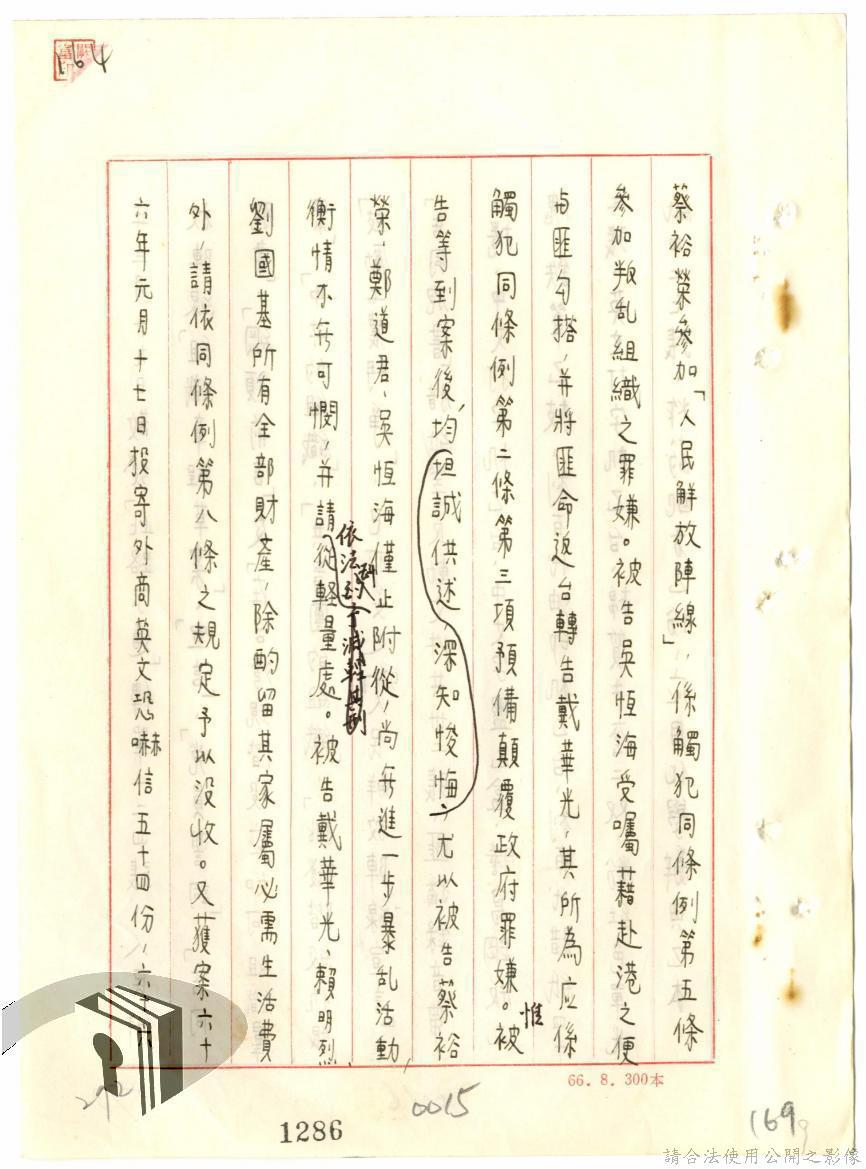 164
蔡裕榮參加「人民解放陣線」，係觸犯同條例第五條
參加叛乱組織之罪嫌。被告吳恆海受囑藉赴港之便
与匪勾搭，并將匪命返台轉告戴華光，其所為应係
觸犯同條例第二條第三項預備顛覆政府罪嫌。惟被
告等到案後，均坦誠供述，深知悛悔，尤以被告蔡裕
榮、鄭道君、吳恆海僅止附從，尚无進一步暴乱活動，
衡情不无可憫，并請從輕量處。被告戴華光、賴明烈、
依法予減輕其刑
劉國基所有全部財產，除酌留其家屬必需生活費
外，請依同條例第八條之規定予以沒收。又獲案六十
六年元月十七日投寄外商英文恐嚇信五十四份，六十六
66. 8. 300本
292
0015
1286
169
請合法使用公開之影像